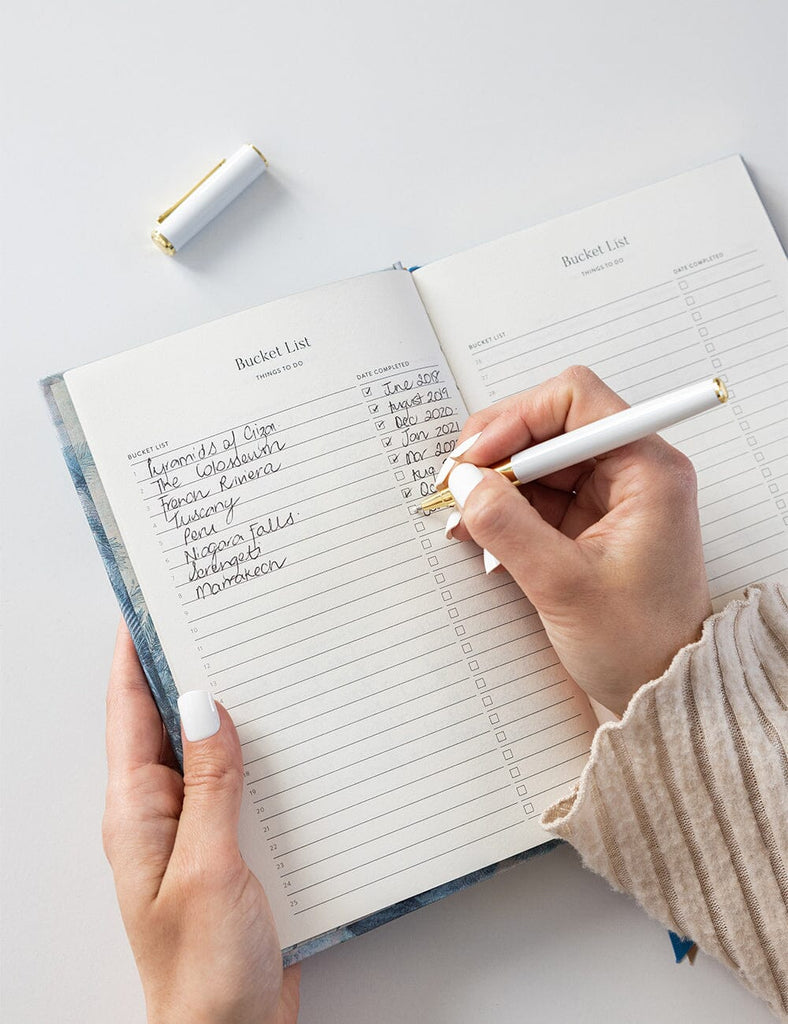 Bucket List
THINGS TO DO
BUCKET LIST
DATE COMPLETED
1 Pyramids of Giza June 2018
2 The Colosseum August 2019
3 French Riviera Dec 2020
4 Tuscany Jan 2021
5 Peru Mar
6 Niagara Falls. Aug
7 Serengeti
8 Marrakech
9
10
11
12
13
18
19
20
21
22
23
24
25
Bucket List
THINGS TO DO
BUCKET LIST
DATE COMPLETED
26
27
28